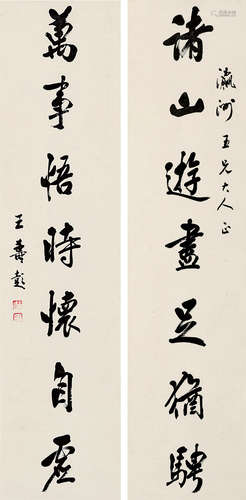 瀛洲五兄大人正
諸山遊盡足猶騁
萬事悟時懷自虛
王壽彭